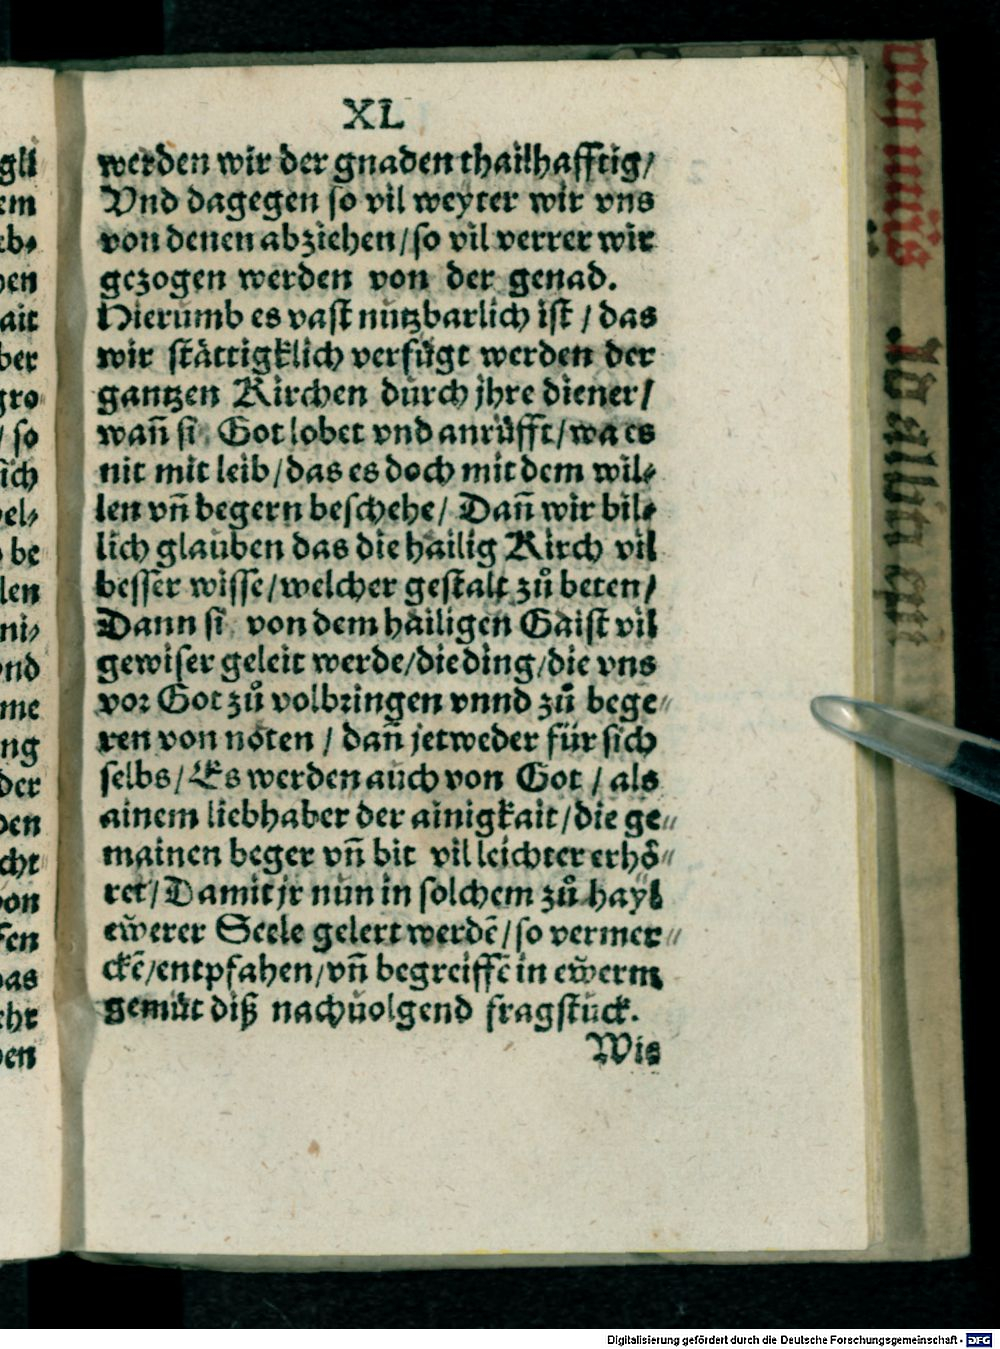 XL
werden wir der gnaden thailhafftig/
Vnd dagegen so vil weyter wir vns
von denen abziehen/so vil verrer wir
gezogen werden von der genad.
Hierumb es vast nutzbarlich ist / das
wir stättigklich verfügt werden der
gantzen Kirchen durch jhre diener/
wañ si Got lobet vnd anrüfft/wa es
nit mit leib/das es doch mit dem wil⸗
len vñ begern beschehe/ Dañ wir bil⸗
lich glauben das die hailig Kirch vil
besser wisse/welcher gestalt zů beten/
Dann si von dem hailigen Gaist vil
gewiser geleit werde/die ding/die vns
vor Got zů volbringen vnnd zů bege⸗
ren von nöten / dañ jetweder für sich
selbs/Es werden auch von Got / als
ainem liebhaber der ainigkait/die ge⸗
mainen beger vñ bit vil leichter erhö⸗
ret/Damit jr nun in solchem zů hayl
ewerer Seele gelert werdē/so vermer⸗
ckē/entpfahen/vñ begreiffē in ewerm
gemüt diß nachuolgend fragstuck.
Wie
gli
em
eb⸗
hen
ait
ber
gro
/ so
sich
el⸗
be
len
ni⸗
vnd
me
ng
der
den
cht
von
fen
das
ehr
en
Digitalisierung gefördert durch die Deutsche Forschungsgemeinschaft - DFG